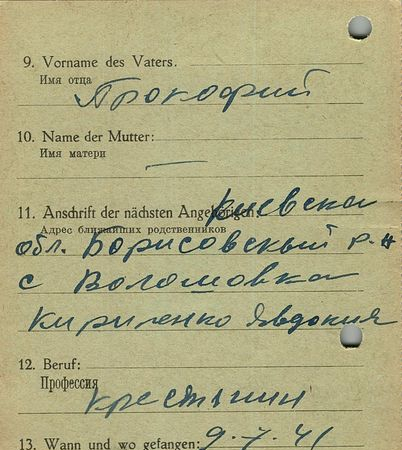 9. Vorname des Vaters.
Имя отца
Прокофий
10. Name der Mutter:
Имя матери
—
11. Anschrift der nächsten Angehörigen:
Адрес ближайших родственников
Киевска
обл. Борисовский р-н
с Воломовка
Кириленко Явдокия
12. Beruf:
Профессия
крестьянин
13. Wann und wo gefangen: 9.7.41